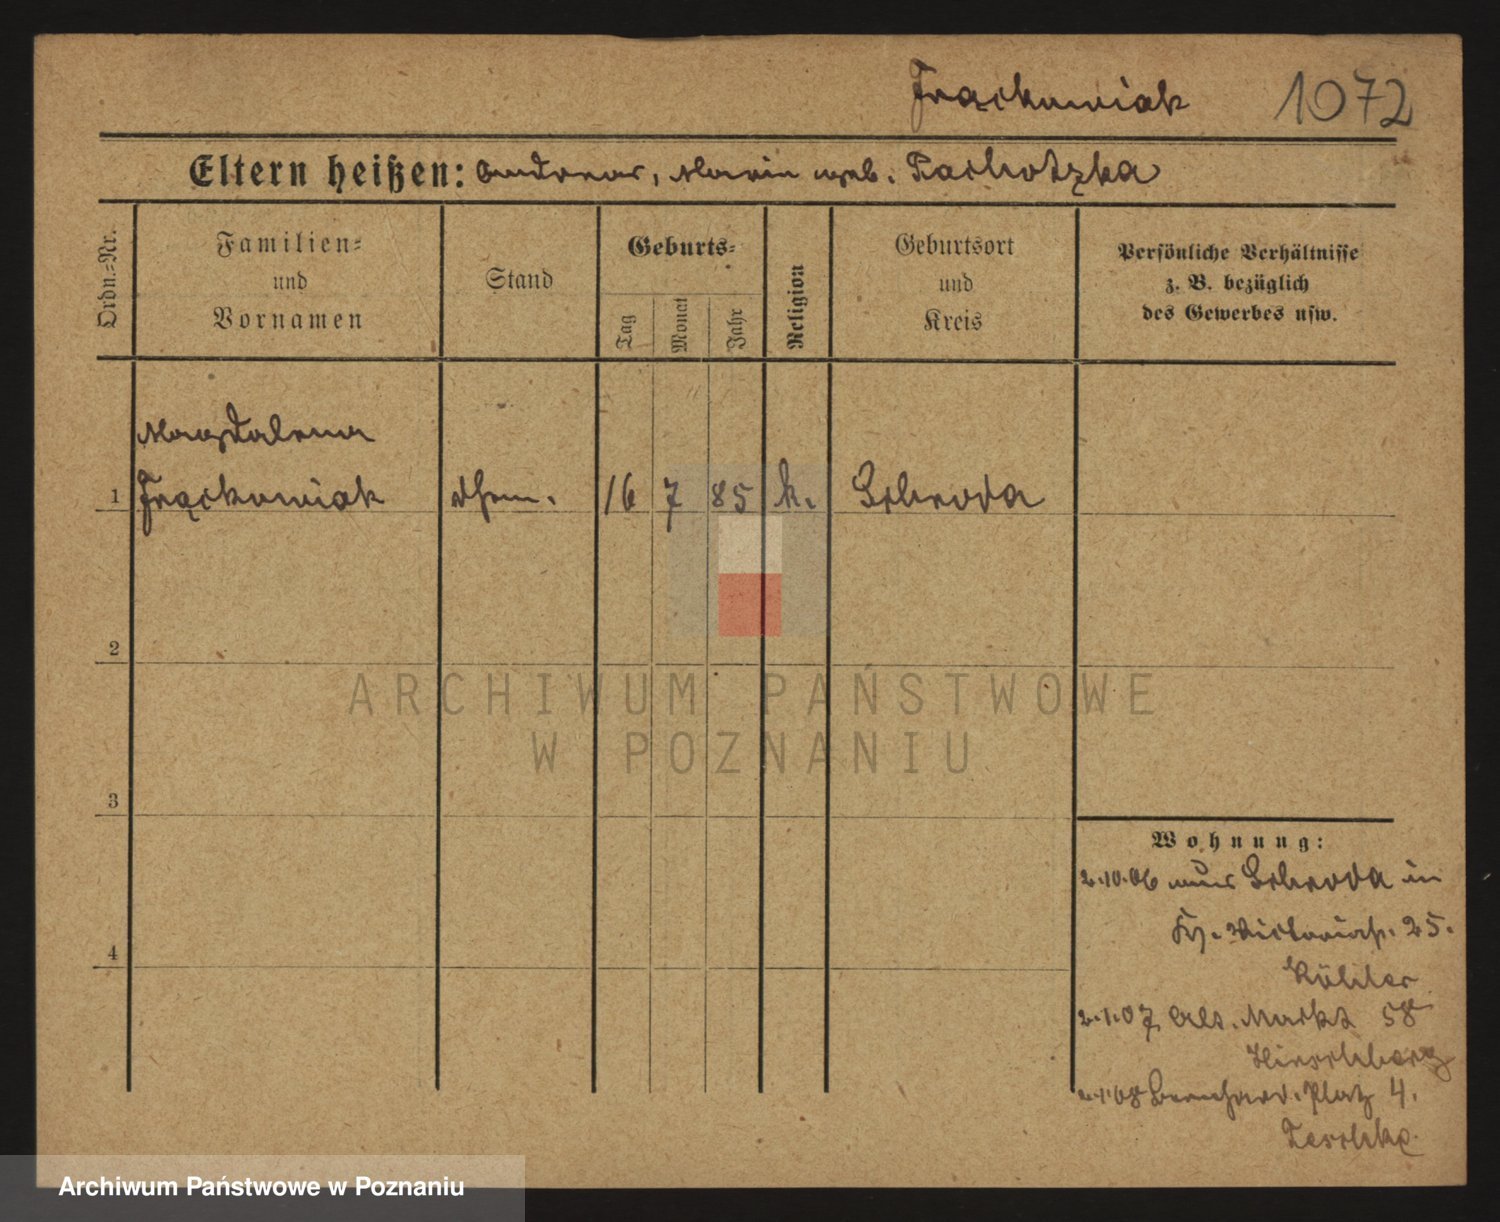 Frąckowiak 1072
Eltern heißen: Andreas, Maria geb.
Ordn.-Nr.
Familien-
und
Vornamen
Stand
Geburts-
Tag
Monat
Jahr
Religion
Geburtsort
und
Kreis
Persönliche Verhältnisse
z. B. bezüglich
des Gewerbes usw.
Magdalena
1 Frąckowiak 16 7 85 k. Schroda
2
ARCHIWUM PAŃSTWOWE
W POZNANIU
3
4
Wohnung:
2.10.06 aus Schroda in
Victoriastr. 25.
Köhler
2.1.07 Alt. Markt 58
Hirschberg
2.1.08 Bernhard. Platz 4.
Archiwum Państwowe w Poznaniu